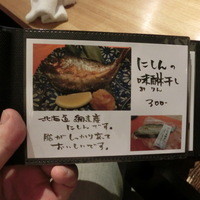 にしんの
味醂干し
みりん
300-
北海道 網走産
にしんです。
脂がしっかり乗って
おいしいです。